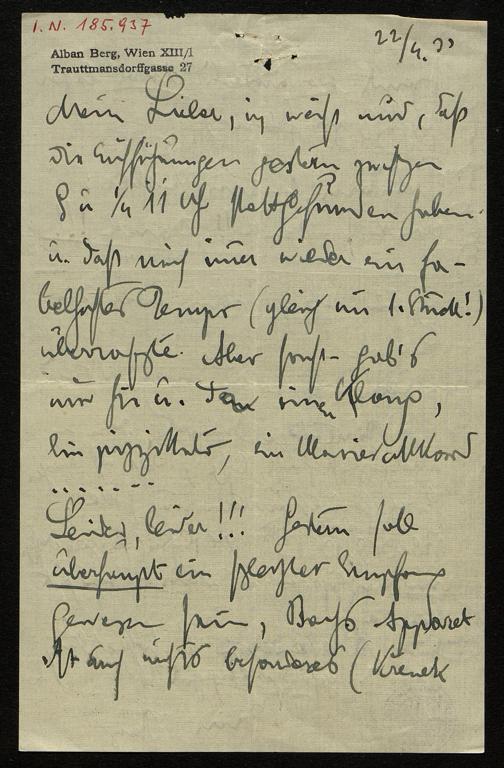 I.N. 185.937
22/4.33
Alban Berg, Wien XIII/1
Trauttmansdorffgasse 27
Mein Lieber, ich weiß nur, daß
die Aufführungen gestern zwischen
8 u ¼ 11 Uhr stattgefunden haben.
u. daß mich immer wieder ein fa-
belhaftes Tempo (gleich im 1. Stück!)
überraschte. Aber sonst gab's
nur hin u. da einen Klang,
ein pizzikato, ein Klavierakkord
.......
Leider, leider!!! Gestern soll
überhaupt ein schlechter Empfang
gewesen sein, Bachs Apparat
ist auch nichts besonderes (Krenek